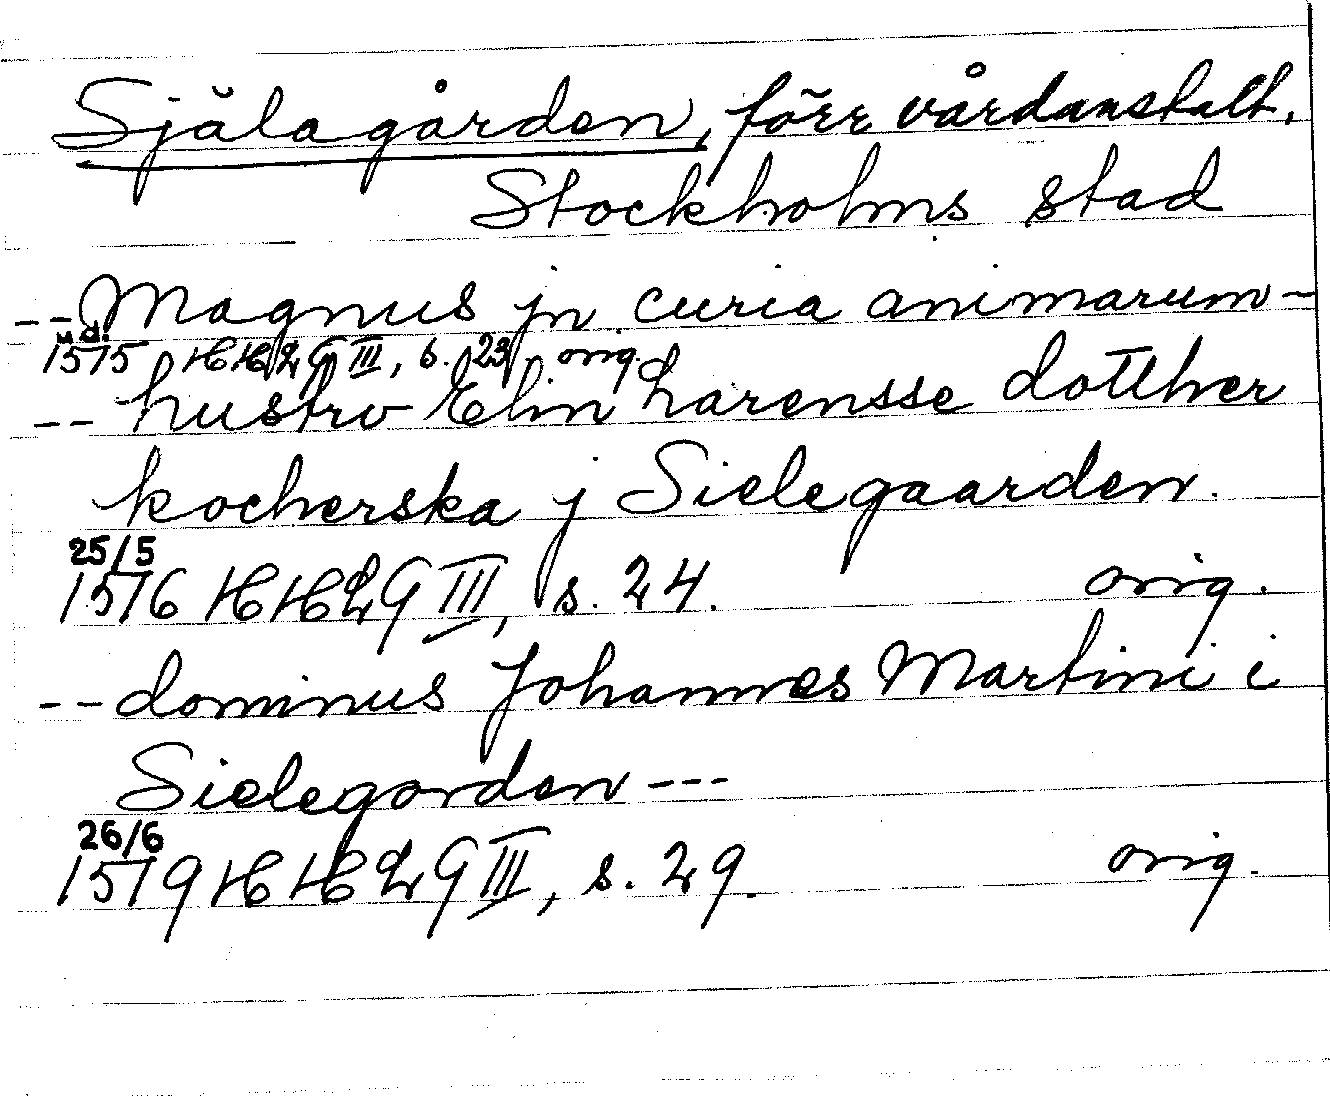 Själagården, förr vårdanstalt.
Stockholms stad
-- Magnus jn curia animarum -
u.d.
1575 HHLG III, s. 23. orig.
-- hustrv Elin Larensse dotther
kocherska j Sielegaarden.
25/5
1576 HHLG III, s. 24. orig.
-- dominus Johannes Martini i
Sielegorden ---
26/6
1579 HHLG III, s. 29. orig.